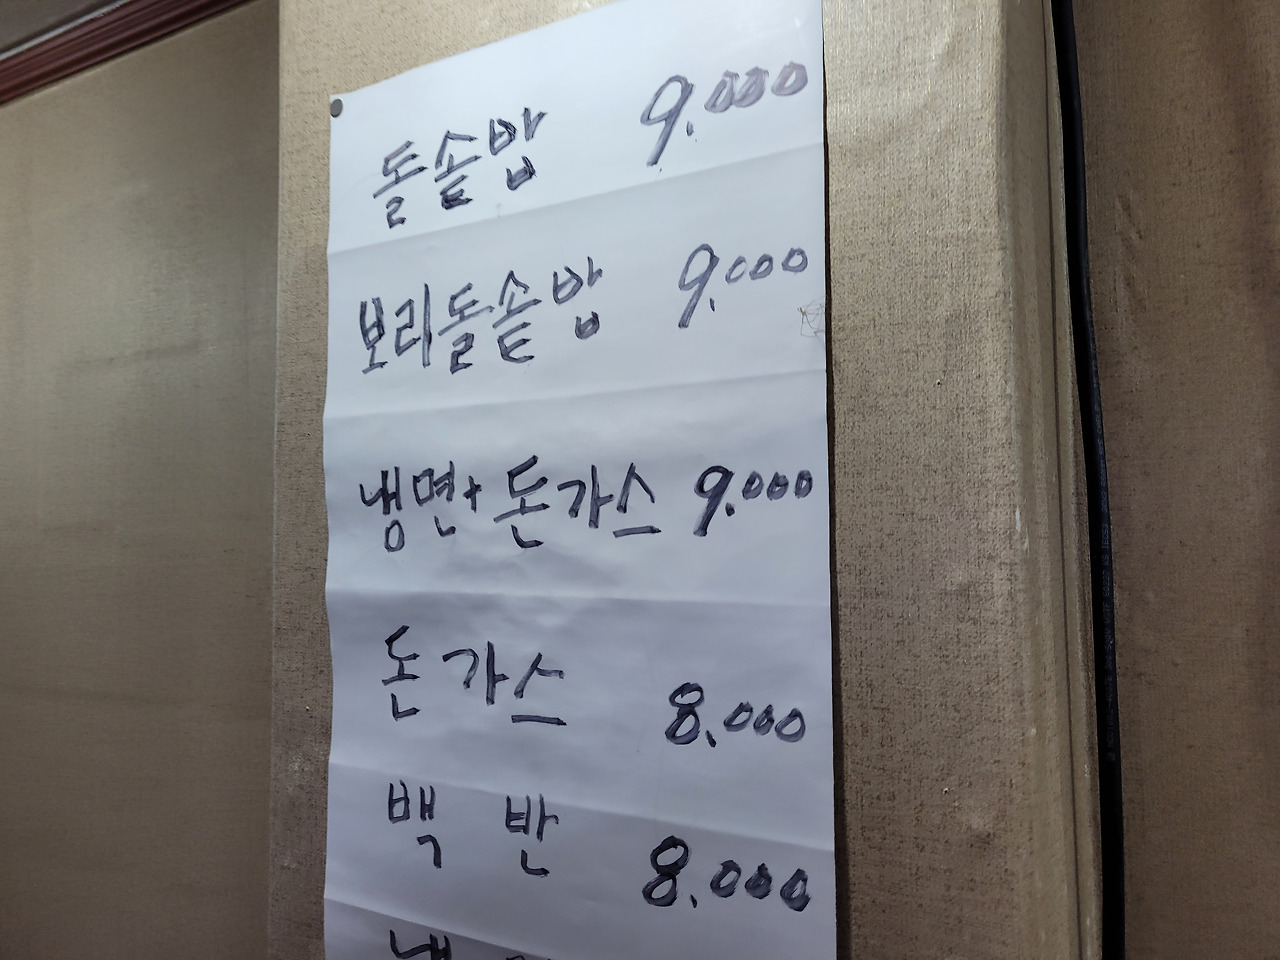 돌솥밥 9.000
보리돌솥밥 9.000
냉면+돈가스 9.000
돈가스 8.000
백반 8.000